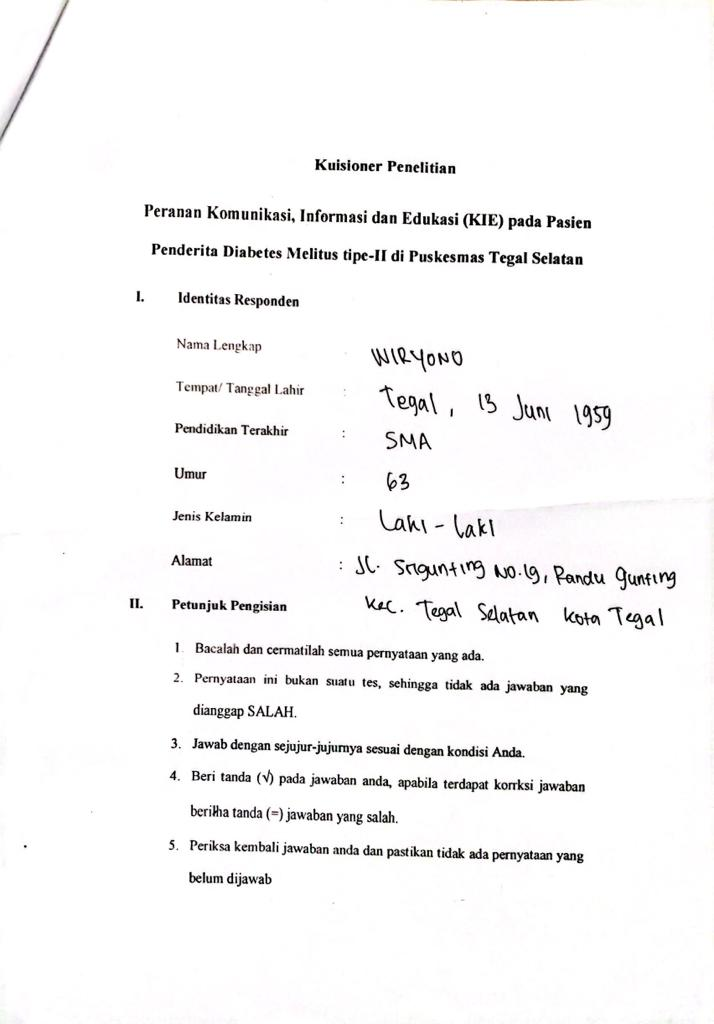 Kuisioner Penelitian
Peranan Komunikasi, Informasi dan Edukasi (KIE) pada Pasien
Penderita Diabetes Melitus tipe-II di Puskesmas Tegal Selatan
I. Identitas Responden
Nama Lengkap WIRYONO
Tempat/ Tanggal Lahir : Tegal, 13 Juni 1959
Pendidikan Terakhir : SMA
Umur : 63
Jenis Kelamin : Laki - Laki
Alamat : Jl. Srigunting No.19, Randu gunting
Kec. Tegal Selatan Kota Tegal
II. Petunjuk Pengisian
1. Bacalah dan cermatilah semua pernyataan yang ada.
2. Pernyataan ini bukan suatu tes, sehingga tidak ada jawaban yang
dianggap SALAH.
3. Jawab dengan sejujur-jujurnya sesuai dengan kondisi Anda.
4. Beri tanda (√) pada jawaban anda, apabila terdapat korrksi jawaban
berilha tanda (=) jawaban yang salah.
5. Periksa kembali jawaban anda dan pastikan tidak ada pernyataan yang
belum dijawab